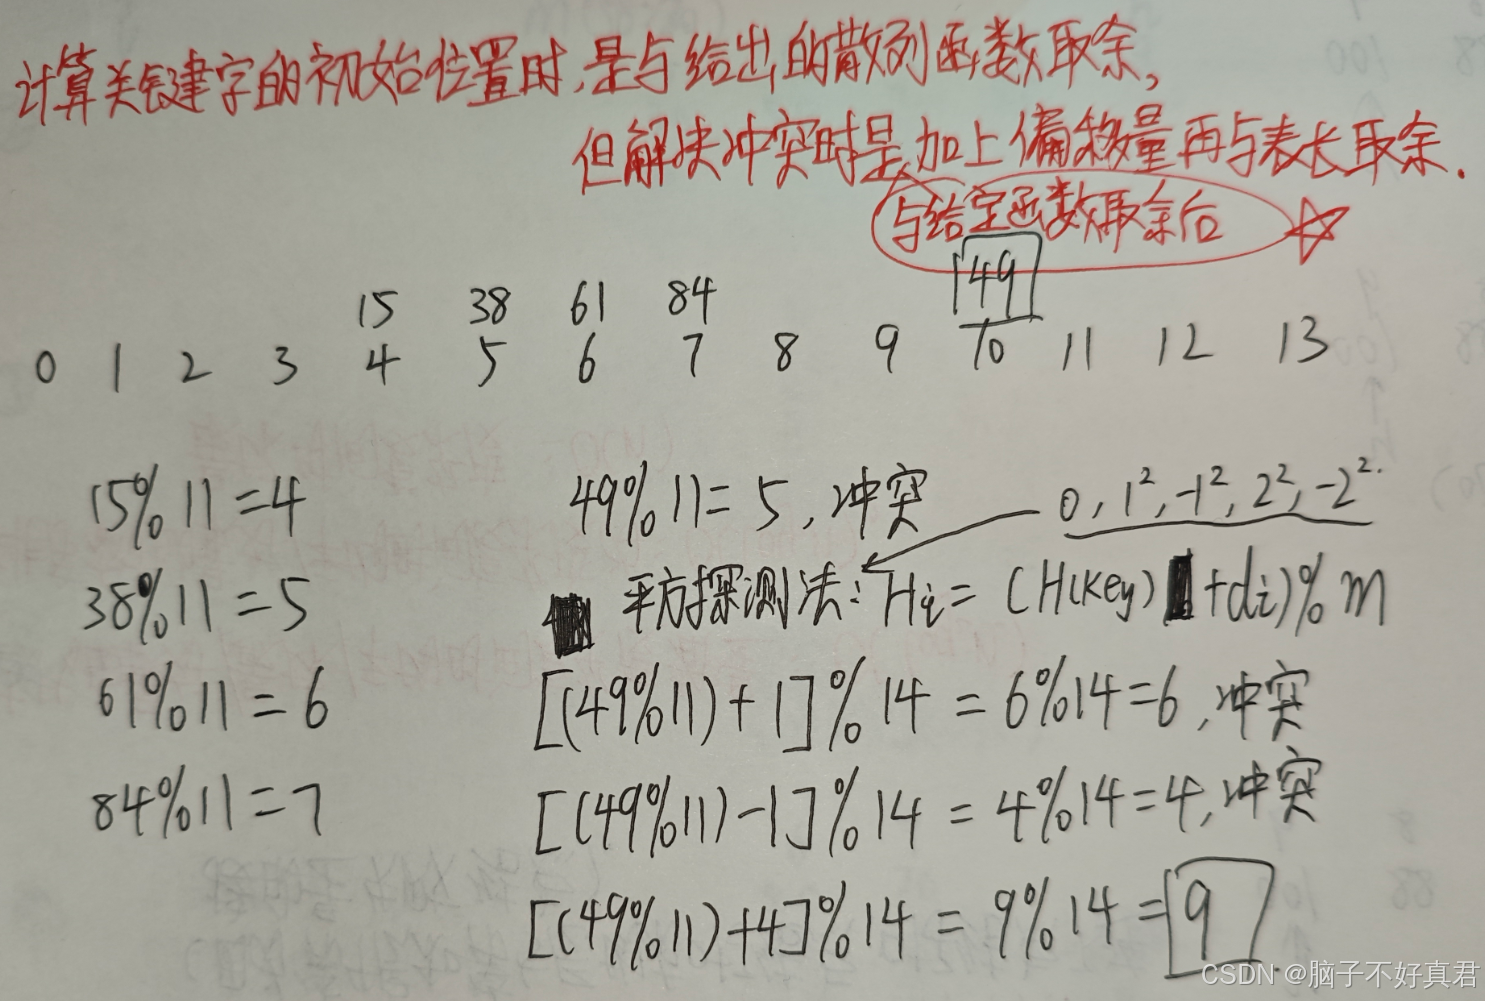 计算关键字的初始位置时,是与给出的散列函数取余,
但解决冲突时是加上偏移量再与表长取余.
与给定函数取余后
49
15 38 61 84
0 1 2 3 4 5 6 7 8 9 10 11 12 13
15%11=4
49%11=5,冲突
0,1²,-1²,2²,-2².
38%11=5
平方探测法:Hi=(H(key)+di)%m
61%11=6
[(49%11)+1]%14=6%14=6,冲突
84%11=7
[(49%11)-1]%14=4%14=4,冲突
[(49%11)+4]%14=9%14=9
CSDN @脑子不好真君